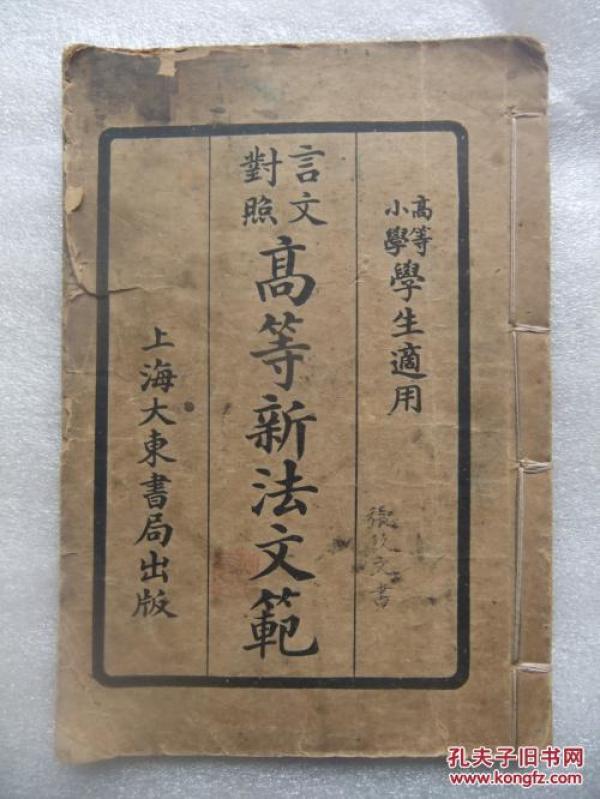 高等小學學生適用
張文書
言文對照高等新法文範
上海大東書局出版
孔夫子旧书网
www.kongfz.com